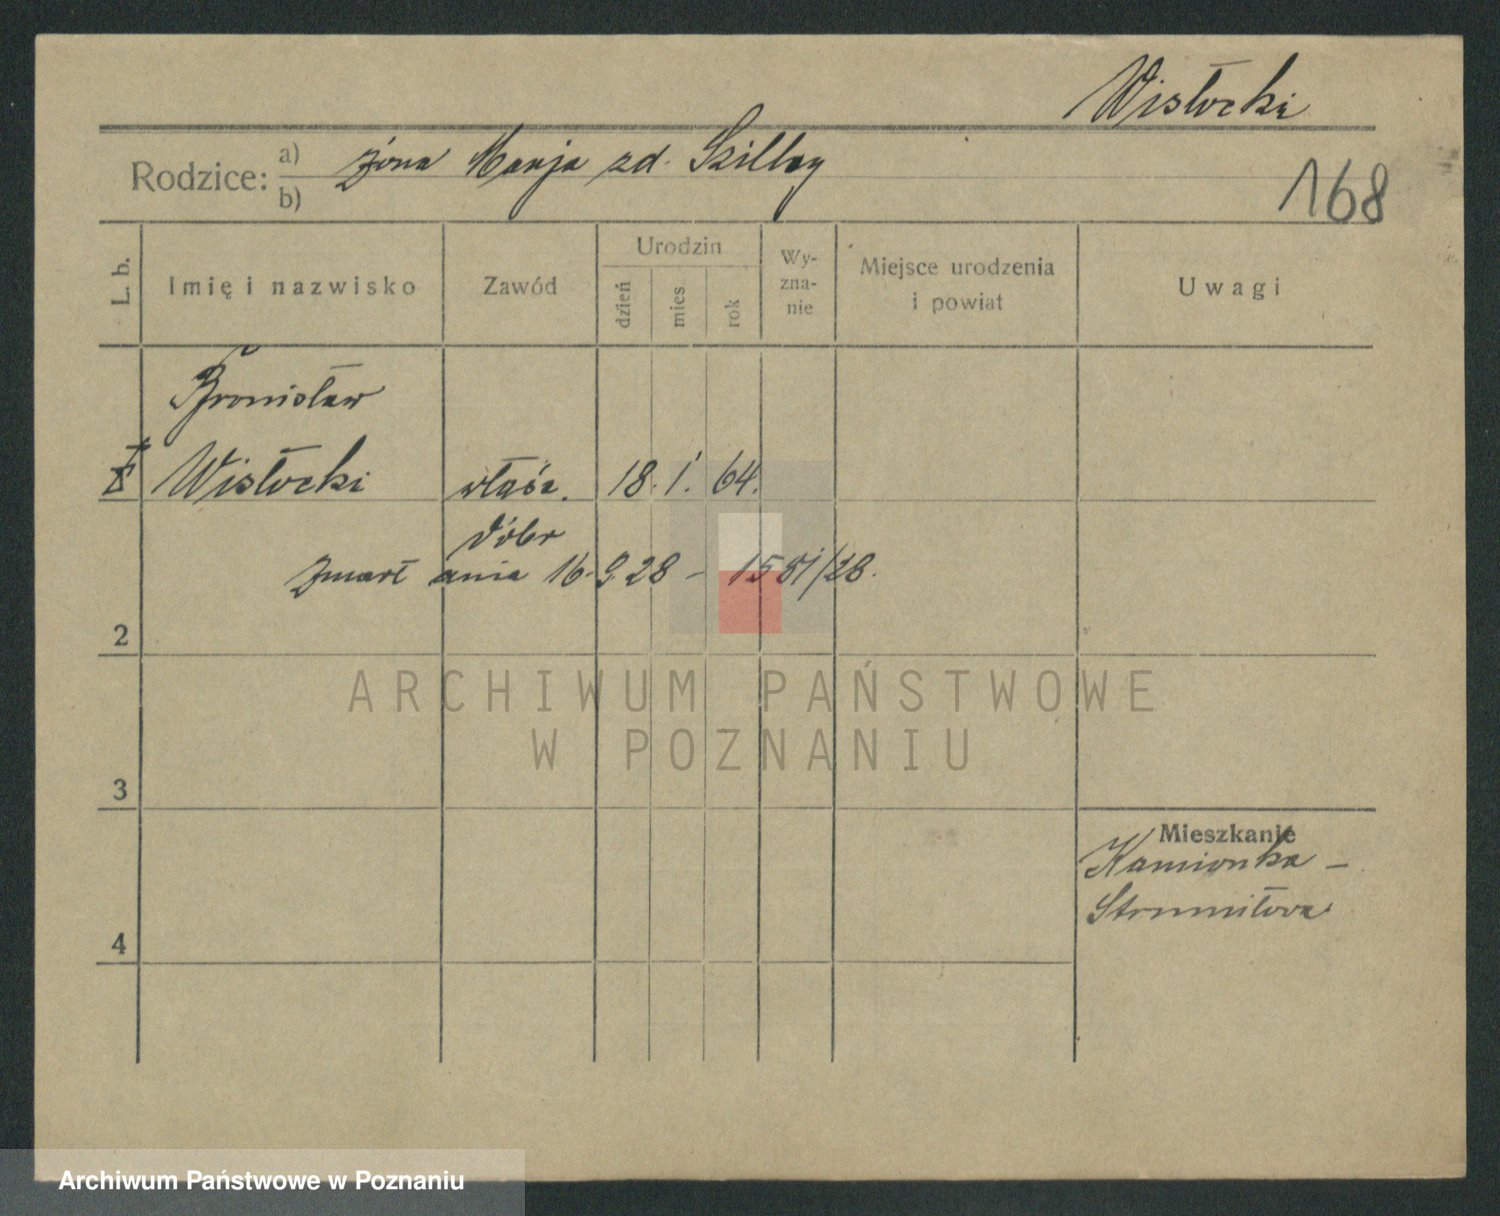 Wisłocki
Rodzice: a) żona Marja zd. Szillay
b)
168
L. b.
Imię i nazwisko
Zawód
Urodzin
dzień
mies.
rok
Wy-
zna-
nie
Miejsce urodzenia
i powiat
Uwagi
Bronisław
Wisłocki właśc. 18. 1. 64.
dóbr
zmarł dnia 16.9.28 - 1581/28.
2
3
4
Mieszkanie
Kamionka -
Strumiłowa
ARCHIWUM PAŃSTWOWE
W POZNANIU
Archiwum Państwowe w Poznaniu